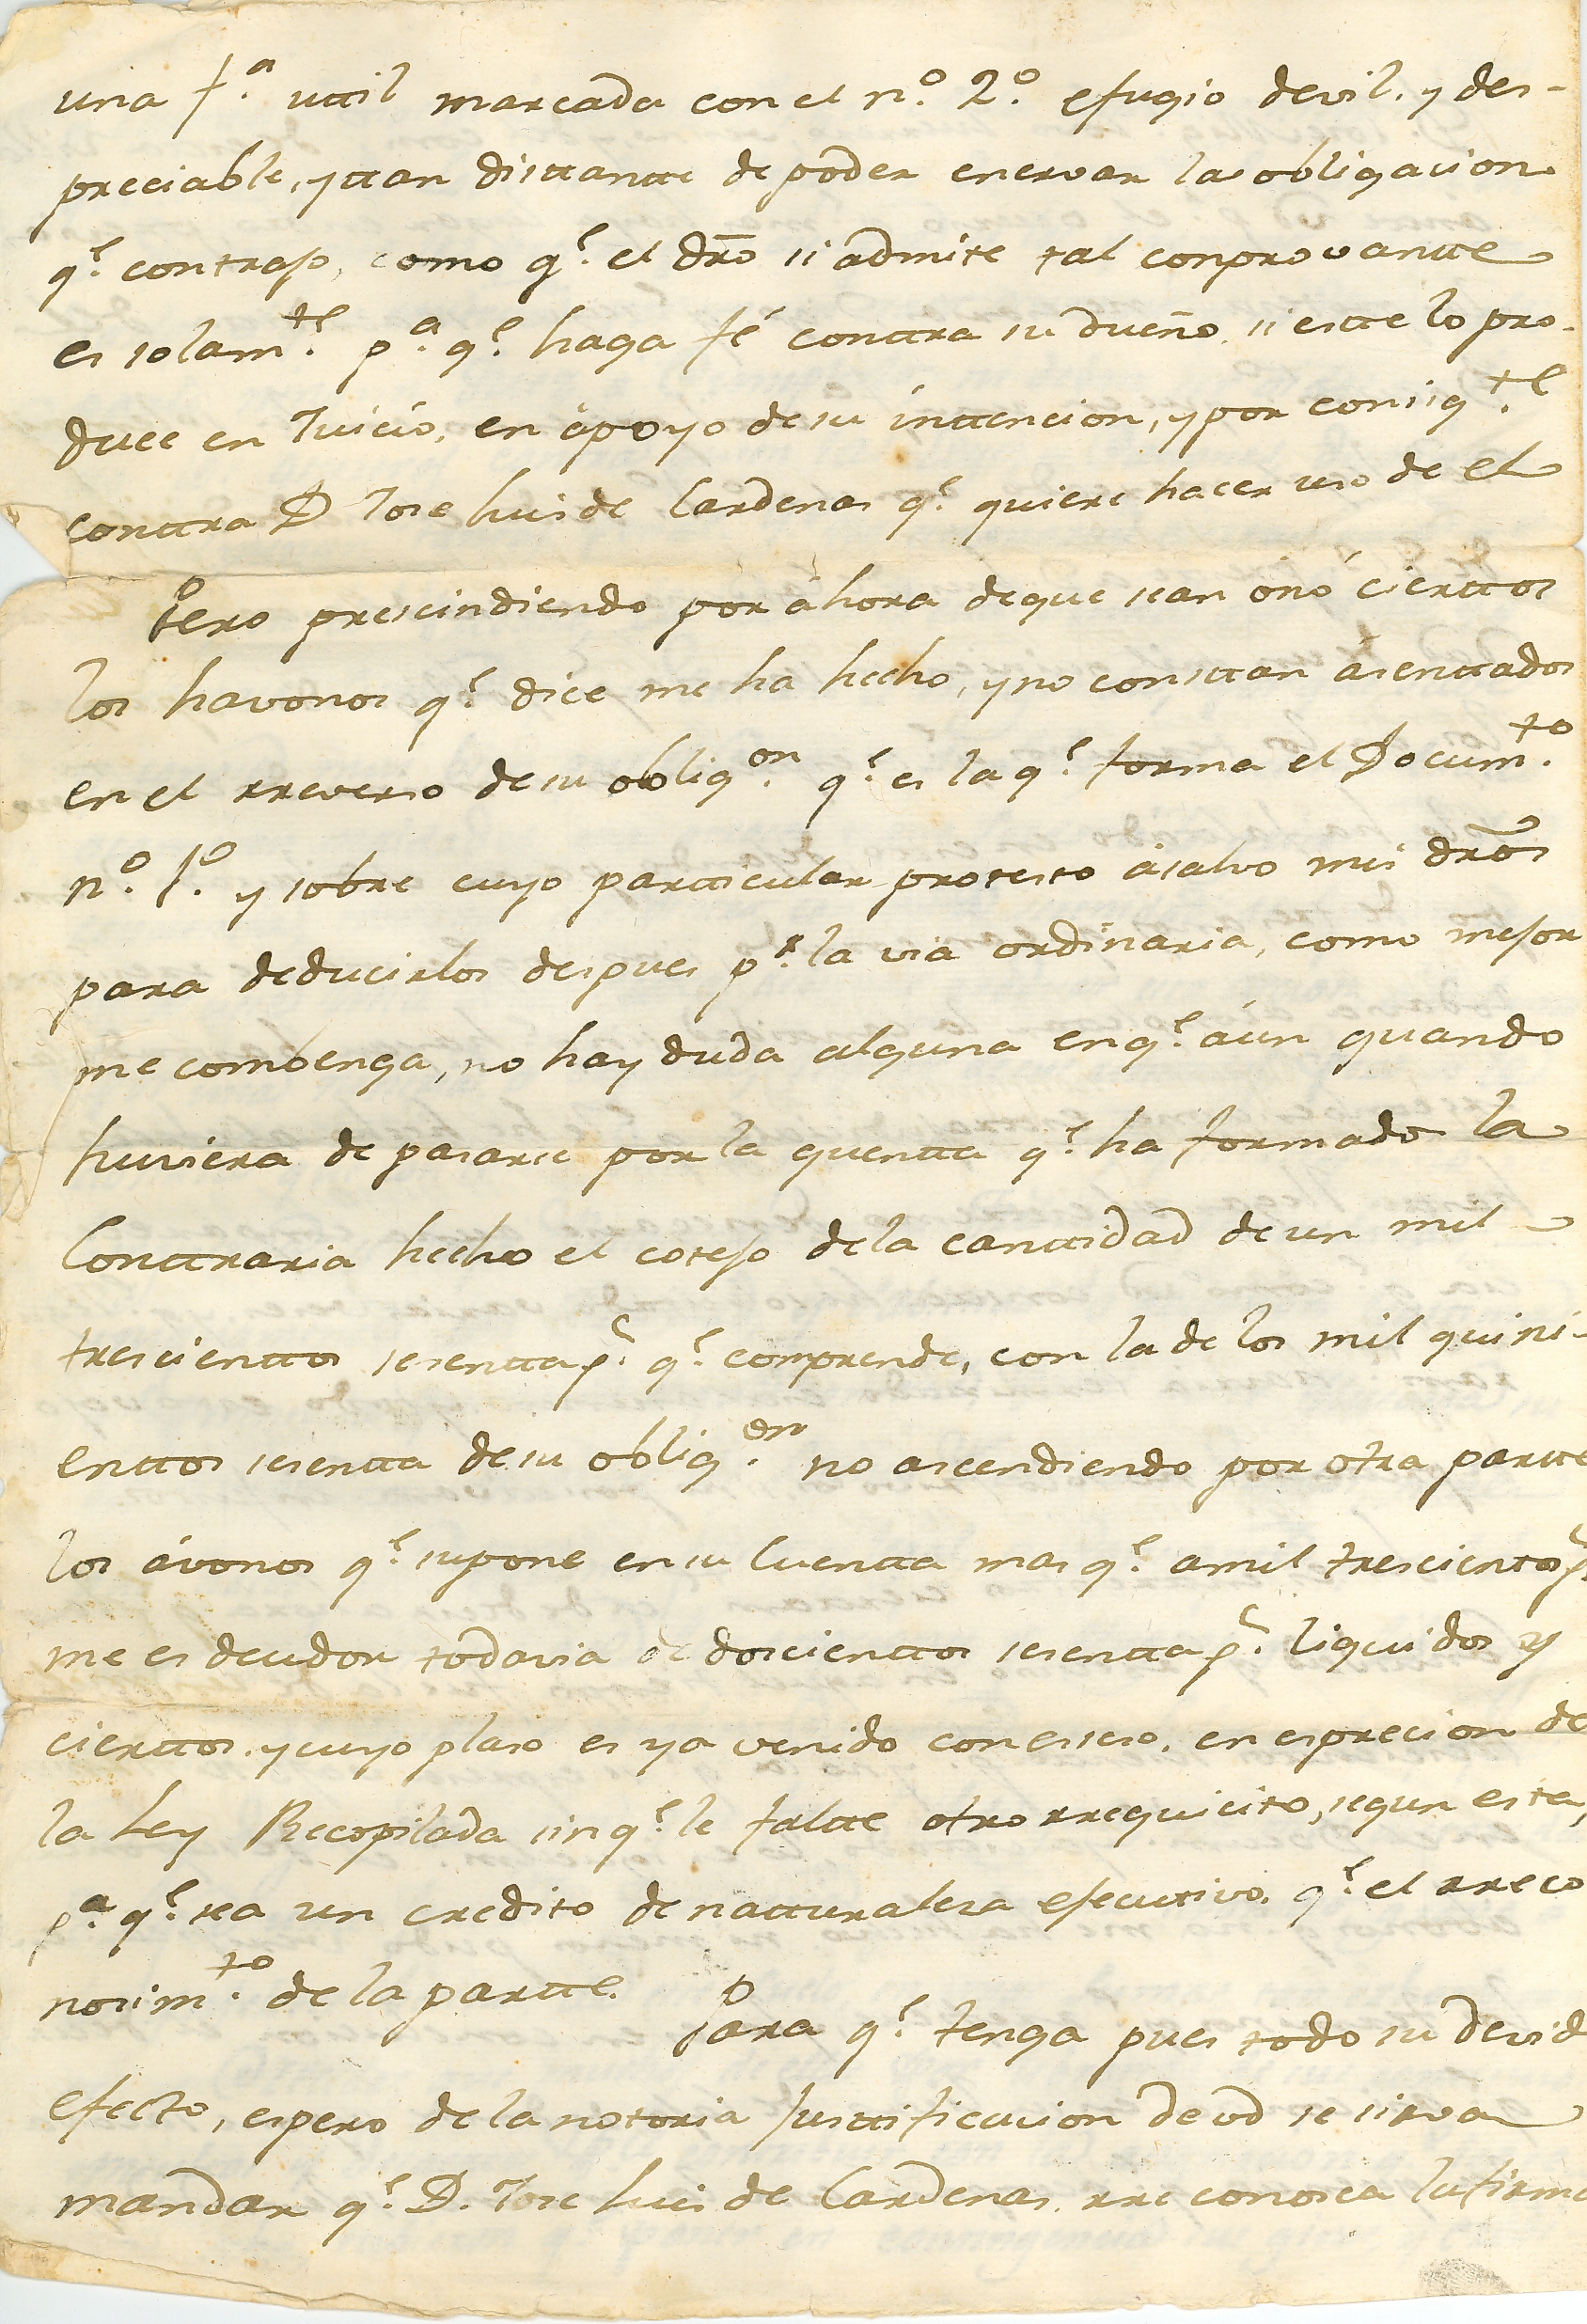 una f.ª uttil marcada con el n.º 2.º efugio devil. y des-
preciable, y ttan disttantte de poder enervar la obligacion
q.e contrajo, como q.e el dro si admite tal conprovantte
es solam.te p.ª q.e haga fé conttra su dueño, si estte lo pro-
duce en Juício, en ápoyo de su ínttencion, y por consig.te
conttra D Jose Luis de Cardenas q.e quiere hacer uso de el
Pero prescindiendo por áhora de que sean onó cierttos
los havonos q.e dice me ha hecho, y no consttan ásenttados
en el rreverso de su oblig.on q.e es la q.e forma el Docum.to
n.º 1.º y sobre cuyo partticular protesto ásalvo mis dros
para deducirlos despues p.r la via ordinaria, como mejor
me combenga, no hay duda alguna en q.e áun quando
huviera de pasarse por la quentta q.e ha formado la
Conttraria hecho el cotejo de la canttidad de un mil
trescienttos sesentta p.s q.e comprende, con la de los mil quini-
enttos sesentta de su oblig.on no ascendiendo por otra partte
los ávonos q.e supone en su Cuentta mas q.e a mil trescientos p.s
me es deudor todavia de doscienttos sesentta p.s liquidos y
ciertos, y cuyo plaso es ya venido con esseso, en esprecion de
la Ley Recopilada sin q.e le faltte otro rrequicito, segun esta,
p.ª q.e sea un credito de natturalesa ejecutivo, q.e el rreco
nosim.to de la partte. Para q.e tenga pues todo su devid
efecto, espero de la notoria Justtificacion de vd se sirva
mandar q.e D. Jose Luis de Cardenas, rreconosca la firma